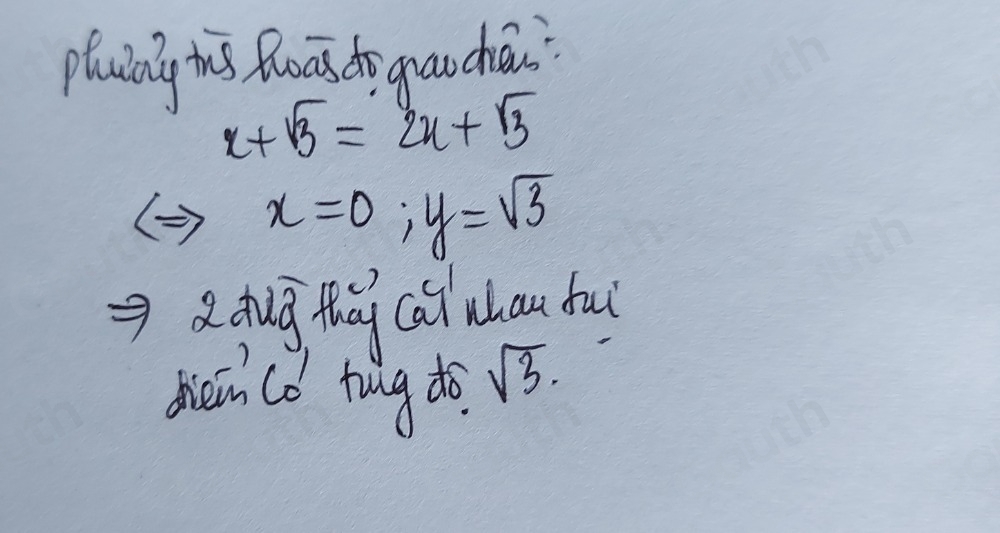 phương trìs hoàs độ giao điểm:
x + √3 = 2x + √3
<=> x = 0 ; y = √3
=> 2 đưg thẳg cắt nhau tại
điểm có tug độ √3.